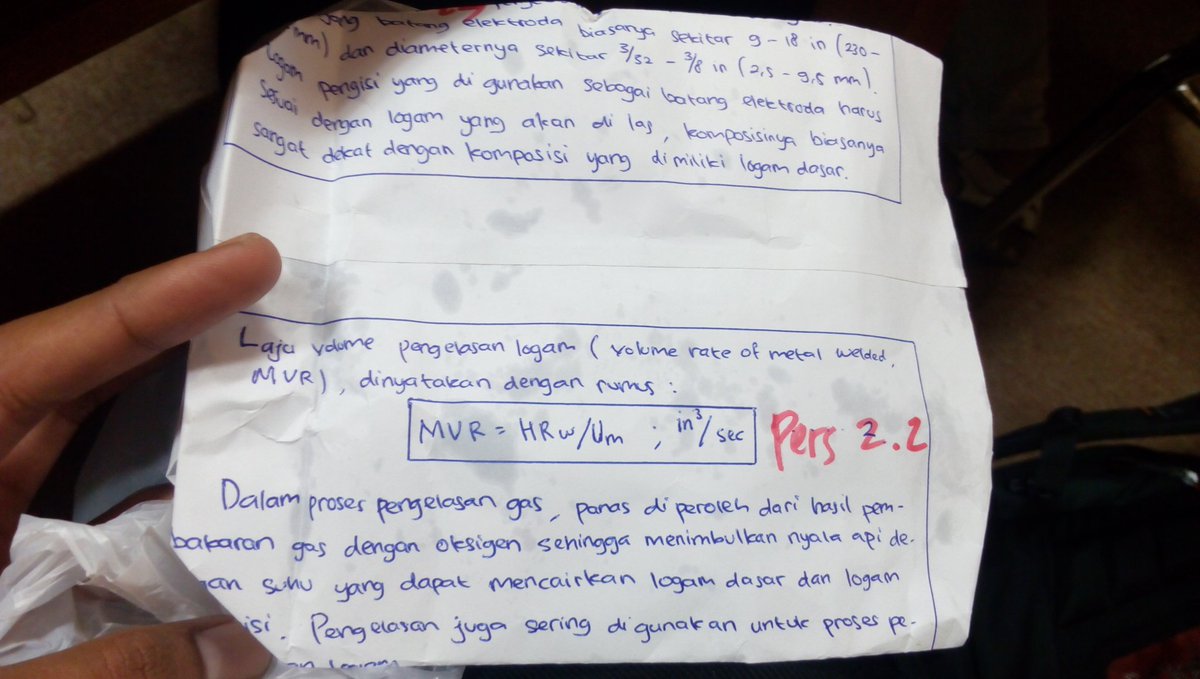 batang elektroda biasanya sekitar 9 - 18 in (230 -
mm) dan diameternya sekitar 3/32 - 3/8 in (2,5 - 9,5 mm).
Logam pengisi yang di gunakan sebagai batang elektroda harus
Sesuai dengan logam yang akan di las, komposisinya biasanya
sangat dekat dengan komposisi yang dimiliki logam dasar.
Laju volume pengelasan logam ( volume rate of metal welded,
MVR), dinyatakan dengan rumus :
MVR = HRw/Um ; in³/sec
Pers 2.2
Dalam proses pengelasan gas, panas di peroleh dari hasil pem-
bakaran gas dengan oksigen sehingga menimbulkan nyala api de-
an suhu yang dapat mencairkan logam dasar dan logam
isi. Pengelasan juga sering digunakan untuk proses pe-